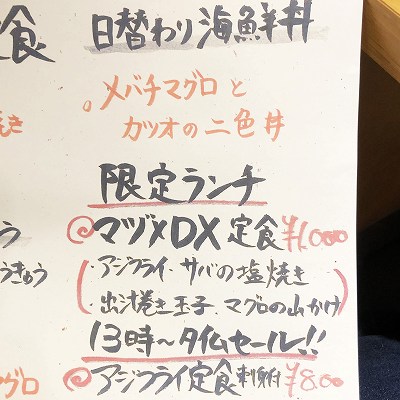 定食
日替わり海鮮丼
。メバチマグロと
カツオの二色丼
限定ランチ
◎マヅメDX定食¥1,000
・アジフライ・サバの塩焼き
・出汁巻き玉子・マグロの山かけ
13時～タイムセール!!
◎アジフライ定食 刺身付 ¥800
焼き
う
うきゅう
マグロ